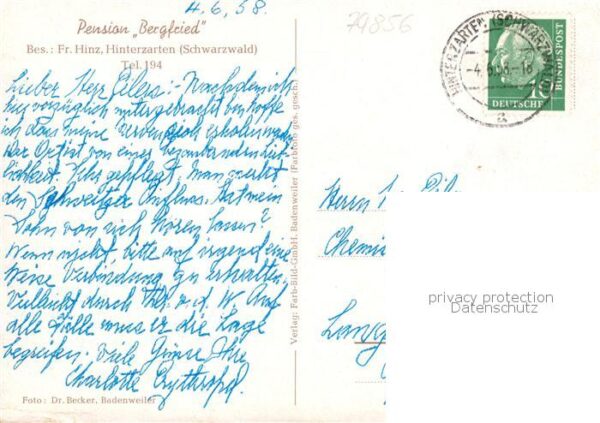 4.6.58.
79856
Pension „Bergfried"
Bes.: Fr. Hinz, Hinterzarten (Schwarzwald)
Tel. 194
Lieber Herr Eilers: - Nachdem ich
hier vorzüglich untergebracht bin hoffe
ich dass meine
Der Ort ist von einer bezaubernden Lieb-
lichkeit. Sehr gepflegt, man merkt
den Schweitzer Einfluss. Hat mein
Sohn von sich hören lassen?
Wenn nicht, bitte auf irgend eine
Weise Verbindung zu erhalten.
Vielleicht durch v. d. W. Auf
alle Fälle muss er die Lage
begreifen. Viele Grüsse Ihre
Charlotte
Foto: Dr. Becker, Badenweiler
Verlag: Farb-Bild-GmbH. Badenweiler (Farbfoto ges. gesch.)
HINTERZARTEN (SCHWARZWALD)
-4.6.58.-18
a
10
DEUTSCHE
BUNDESPOST
Herrn
Chemi
Lang
privacy protection
Datenschutz